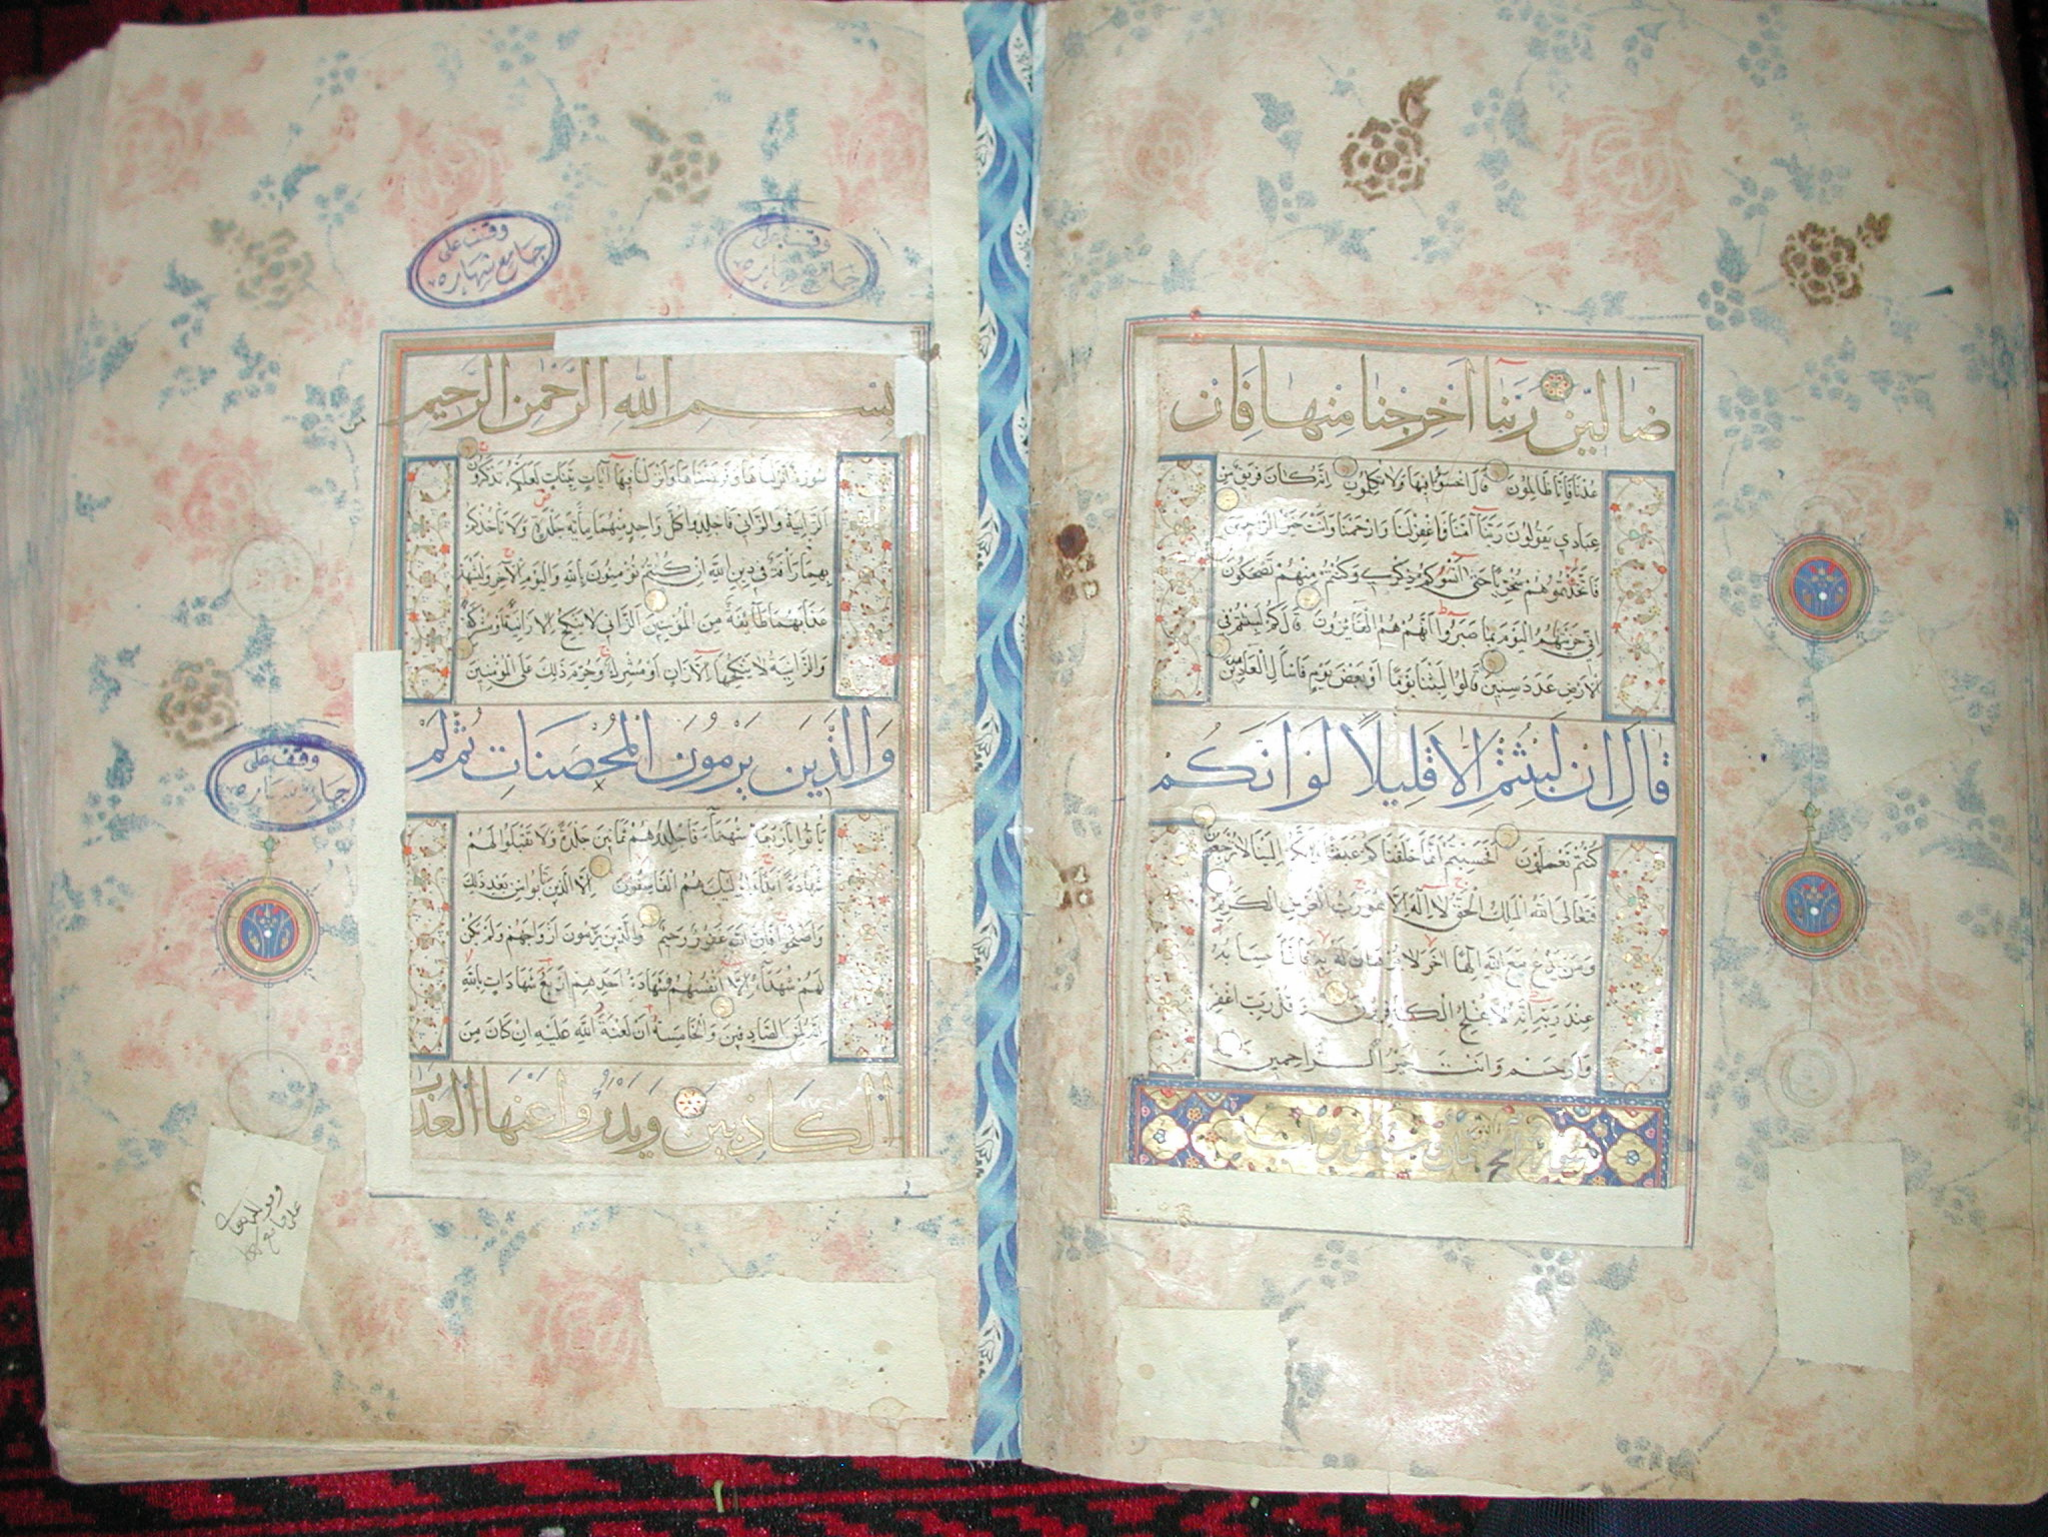 ضالين ربنا اخرجنا منها فان
عدنا فانا ظالمون قال اخسؤا فيها ولا تكلمون انه كان فريق من
عبادي يقولون ربنا آمنا فاغفر لنا وارحمنا وانت خير الراحمين
فاتخذتموهم سخريا حتى انسوكم ذكري وكنتم منهم تضحكون
اني جزيتهم اليوم بما صبروا انهم هم الفائزون قال كم لبثتم في
الارض عدد سنين قالوا لبثنا يوما او بعض يوم فاسأل العادين
قال ان لبثتم الا قليلا لو انكم
كنتم تعملون افحسبتم انما خلقناكم عبثا وانكم الينا لا ترجعون
فتعالى الله الملك الحق لا اله الا هو رب العرش الكريم
ومن يدع مع الله الها آخر لا برهان له به فانما حسابه
عند ربه انه لا يفلح الكافرون وقل رب اغفر
وارحم وانت خير الراحمين
وقف على
جامع شهاره
وقف على
جامع شهاره
بسم الله الرحمن الرحيم
سورة انزلناها وفرضناها وانزلنا فيها آيات بينات لعلكم تذكرون
الزانية والزاني فاجلدوا كل واحد منهما مائة جلدة ولا تأخذكم
بهما رأفة في دين الله ان كنتم تؤمنون بالله واليوم الآخر وليشهد
عذابهما طائفة من المؤمنين الزاني لا ينكح الا زانية او مشركة
والزانية لا ينكحها الا زان او مشرك وحرم ذلك على المؤمنين
والذين يرمون المحصنات ثم لم
يأتوا باربعة شهداء فاجلدوهم ثمانين جلدة ولا تقبلوا لهم
شهادة ابدا واوليك هم الفاسقون الا الذين تابوا من بعد ذلك
واصلحوا فان الله غفور رحيم والذين يرمون ازواجهم ولم يكن
لهم شهداء الا انفسهم فشهادة احدهم اربع شهادات بالله
انه لمن الصادقين والخامسة ان لعنة الله عليه ان كان من
الكاذبين ويدرؤا عنها العذاب
وقف على
جامع شهاره